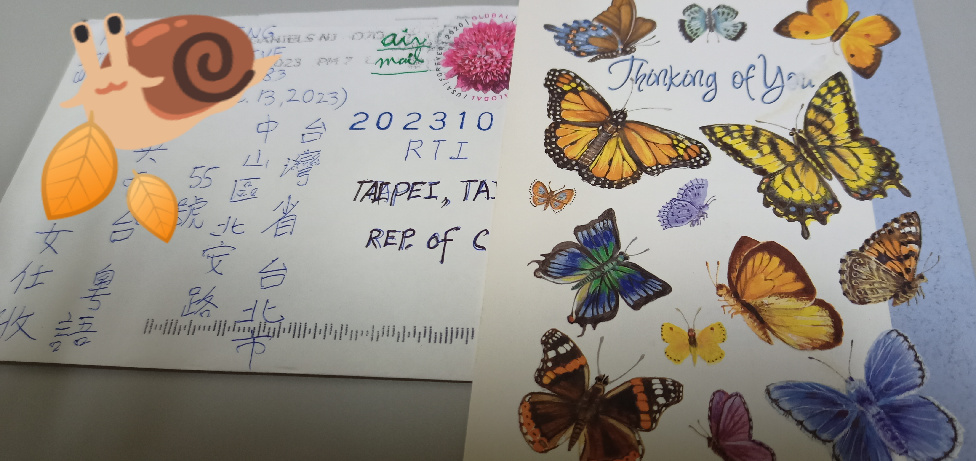 air
mail
GLOBAL
FOREVER/USA/2020
2023 PM 7 L
. 13, 2023)
202310
RTI
TAIPEI, TAI
REP. of C
台灣省台北市
中山區北安路
55號
台粵語
女仕收
Thinking of You